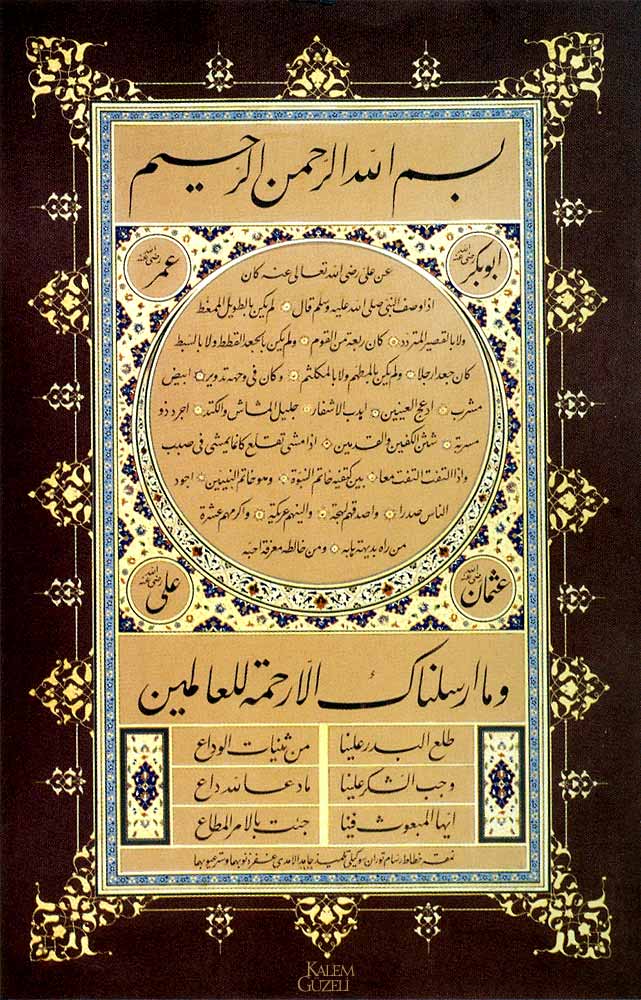 بسم الله الرحمن الرحيم
ابوبكر رضى الله عنه
عمر رضى الله عنه
عن على رضى الله تعالى عنه كان
اذا وصف النبى صلى الله عليه وسلم قال لم يكن بالطويل الممغط
ولا بالقصير المتردد كان ربعة من القوم ولم يكن بالجعد القطط ولا بالسبط
كان جعدا رجلا ولم يكن بالمطهم ولا بالمكلثم وكان فى وجهه تدوير ابيض
مشرب ادعج العينين اهدب الاشفار جليل المشاش والكتد اجرد ذو
مسربة شثن الكفين والقدمين اذا مشى تقلع كانما يمشى فى صبب
واذا التفت التفت معا بين كتفيه خاتم النبوة وهو خاتم النبيين اجود
الناس صدرا واصدقهم لهجة والينهم عريكة واكرمهم عشرة
من راه بديهة هابه ومن خالطه معرفة احبه
عثمان رضى الله عنه
على رضى الله عنه
وما ارسلناك الا رحمة للعالمين
طلع البدر علينا من ثنيات الوداع
وجب الشكر علينا ما دعا لله داع
ايها المبعوث فينا جئت بالامر المطاع
نمقه خطاط رسام توران سوگيلى تلميذ حامد الامدى غفر ذنوبهما وستر عيوبهما
KALEM
GUZELI